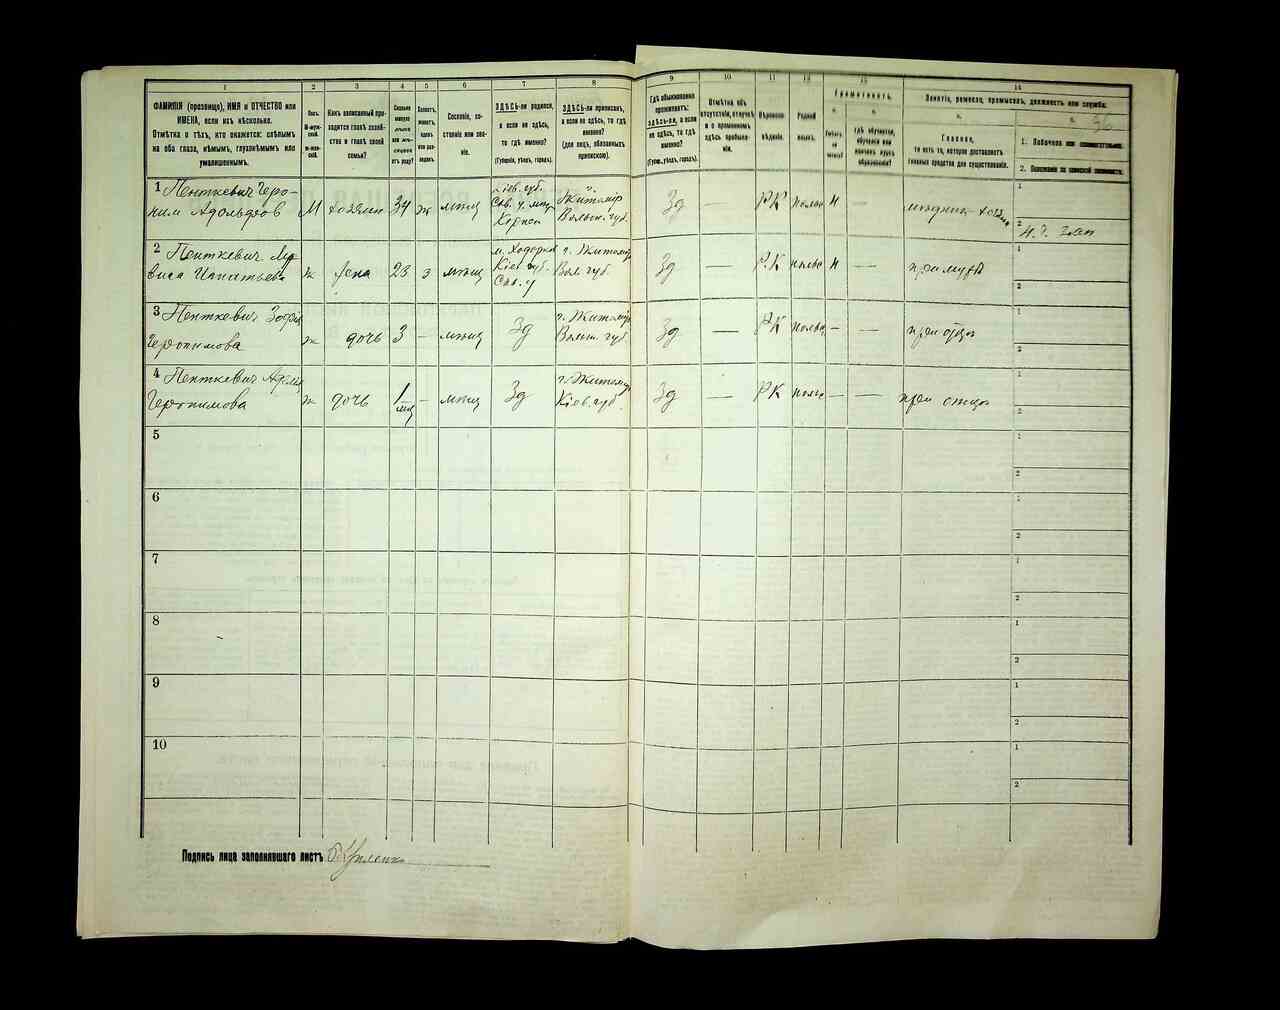 1 2 3 4 5 6 7 8 9 10 11 12 13 14
ФАМИЛІЯ (прозвище), ИМЯ и ОТЧЕСТВО или
ИМЕНА, если ихъ нѣсколько.
Отмѣтка о тѣхъ, кто окажется: слѣпымъ
на оба глаза, нѣмымъ, глухонѣмымъ или
умалишеннымъ.
Полъ.
М-мужской.
Ж-женскій.
Какъ записанный приходится главѣ хозяйства и главѣ своей
семьи?
Сколько
минуло
лѣтъ
или мѣсяцевъ
отъ роду?
Холостъ,
женатъ,
вдовъ
или разведенъ.
Сословіе, состояніе или званіе.
ЗДѢСЬ-ли родился,
а если не здѣсь,
то гдѣ именно?
(Губернія, уѣздъ, городъ).
ЗДѢСЬ-ли приписанъ,
а если не здѣсь, то гдѣ
именно?
(для лицъ, обязанныхъ
припискою).
Гдѣ обыкновенно
проживаетъ:
ЗДѢСЬ-ли, а если
не здѣсь, то гдѣ
именно?
(Губернія, уѣздъ, городъ).
Отмѣтка объ
отсутствіи, отлучкѣ
и о временномъ
здѣсь пребываніи.
Вѣроисповѣданіе.
Родной
языкъ.
Грамотность.
а.
Умѣетъ-ли
читать?
б.
гдѣ обучается,
обучался или
кончилъ курсъ
образованія?
Занятіе, ремесло, промыселъ, должность или служба.
а.
Главное,
то есть то, которое доставляетъ
главныя средства для существованія.
б.
36
1. Побочное или вспомогательное.
2. Положеніе по воинской повинности.
1 Пенткевич Геро-
ним Адольфов М хозяин 34 ж мѣщ Кіев. губ. г. Житомір Волын. губ. Зд — РК польс н — хозяин
2 Пенткевич
Игнатьева ж жена 23 з мѣщ м. Ходорков Кіев. губ. г. Житомір Вол. губ. Зд — Р.К польс н — при мужѣ
3 Пенткевич Зофія
Геронимова ж дочь 3 — мѣщ Зд г. Житомір Волын. губ. Зд — РК польс — — при отцѣ
4 Пенткевич
Геронимова ж дочь 1 мѣс — мѣщ Зд г. Житомір Кіев. губ. Зд — РК польс — — при отцѣ
5
6
7
8
9
10
Подпись лица заполнявшаго листъ